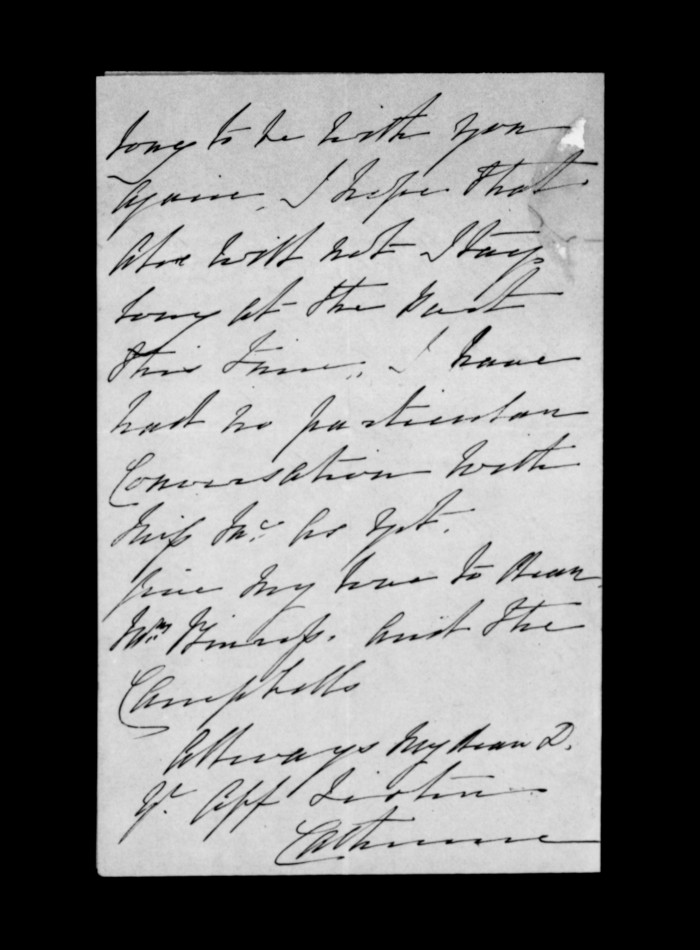 long to be with you
again. I hope that
Alex will not stay
long at the
this time. I have
had no particular
Conversation with
Miss Mc as yet.
Give my love to dear
and the
Campbells
Allways My dear D.
Yr. Aff Sister
Catherine